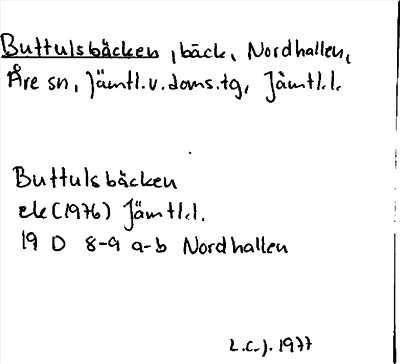 Buttulsbäcken, bäck, Nordhallen,
Åre sn, Jämtl.v.doms.tg, Jämtl.l.
Buttulsbäcken
ek (1976) Jämtl.l.
19 D 8-9 a-b Nordhallen
L.C.J. 1977